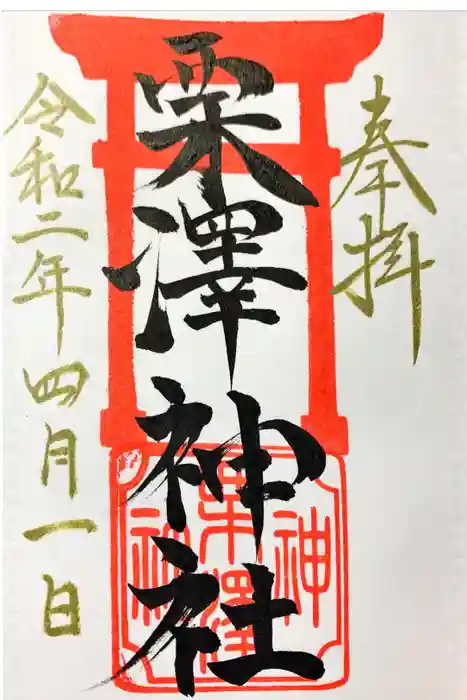 奉掛
栗澤神社
令和二年四月一日
神
栗澤
社